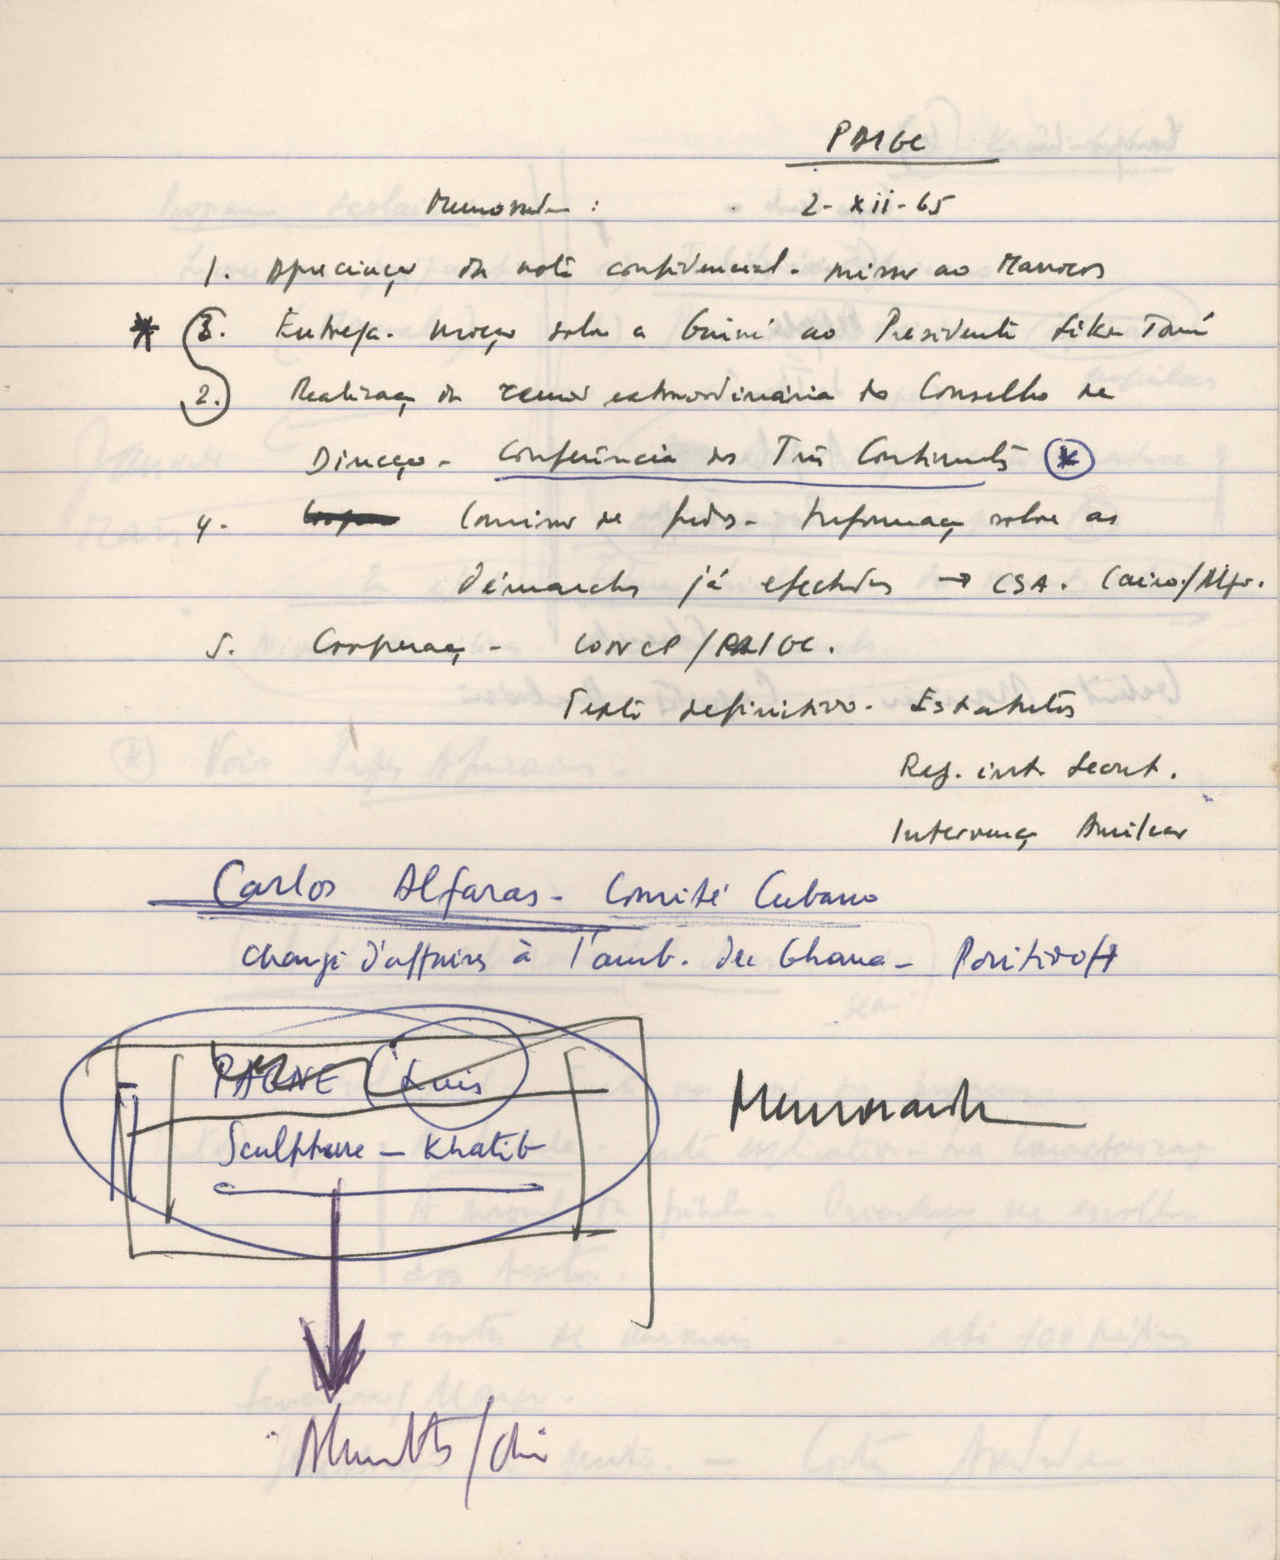 PAIGC
Memorandum : 2-XII-65
1. Apreciação da nota confidencial - missão ao Marrocos
* 3. Entrega. moção sobre a Guiné ao Presidente Séku Touré
2. Realização da reunião extraordinária do Conselho de
Direcção - Conferência dos Três Continentes *
4. Comissão de fundos - Informação sobre as
démarches já efectuadas → CSA. Cairo/Alger.
5. Cooperação - CONCP/PAIGC.
Texto definitivo - Estatutos
Reg. int. Secret.
Intervenção Amilcar
Carlos Alfaras - Comité Cubano
chargé d'affaires à l'amb. du Ghana -
PAGNE Luis
Sculpture - Khatib
Memorandum